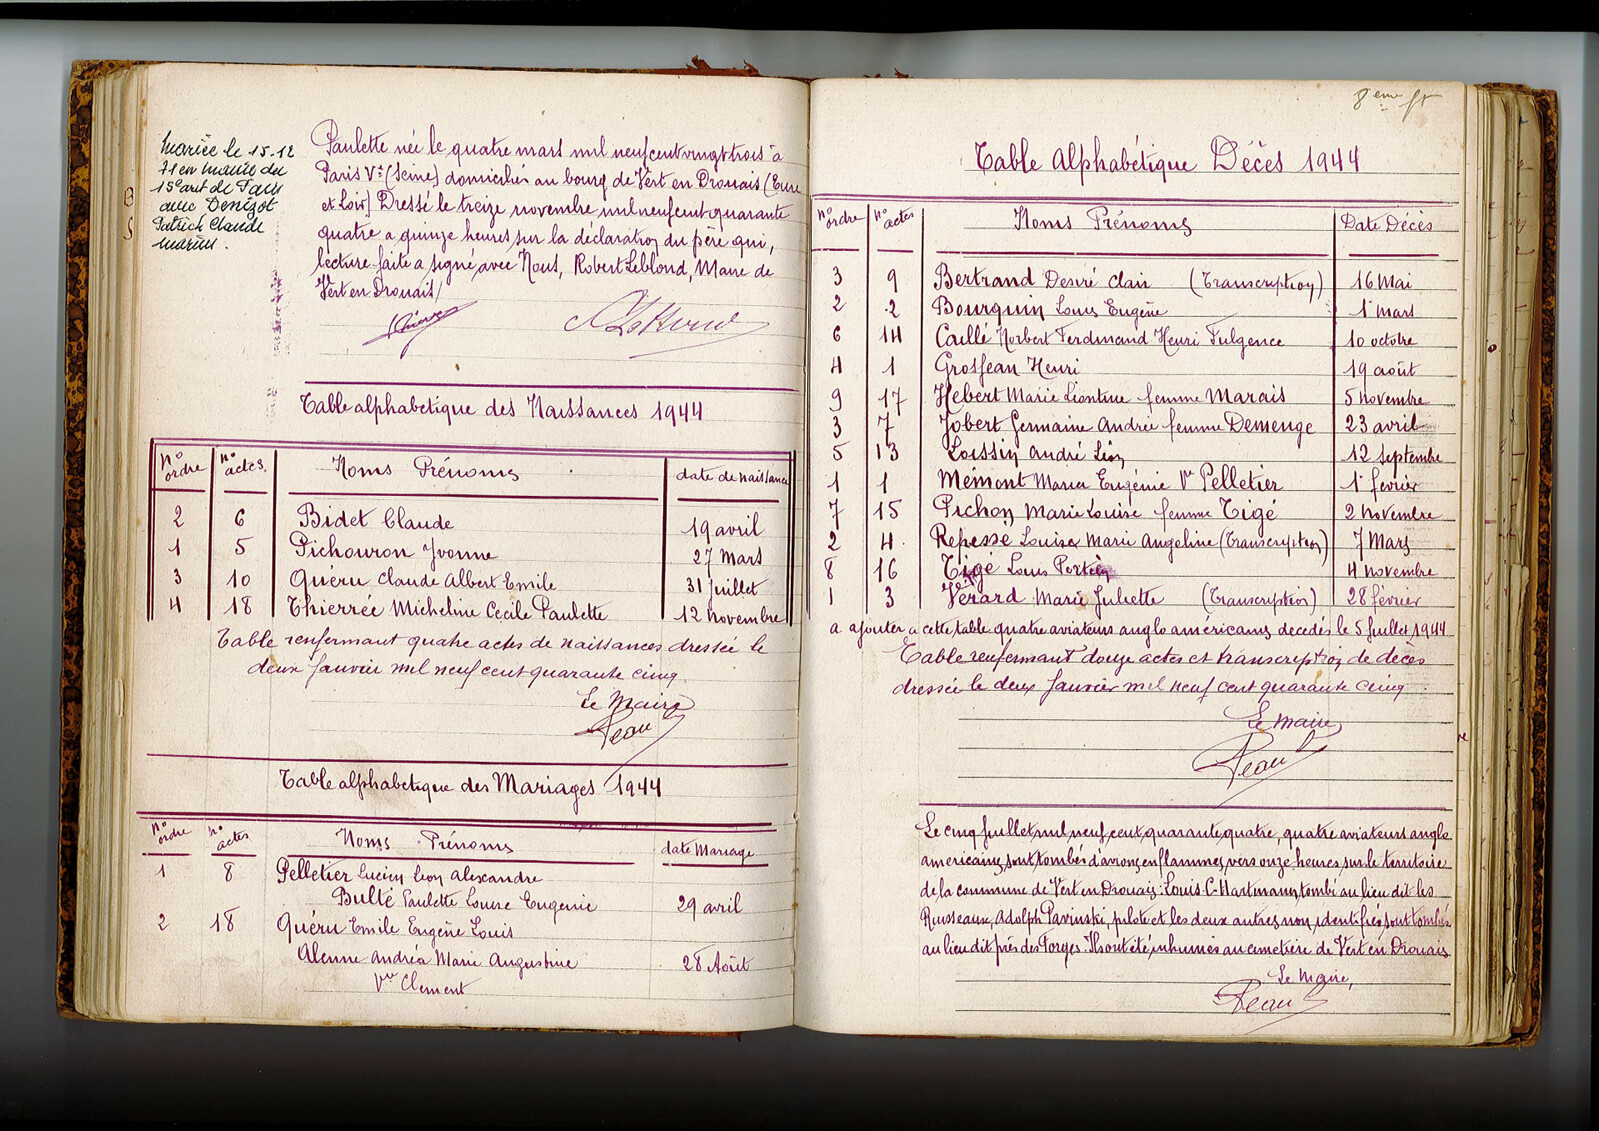 mariée le 15.12
71 en mairie du
15e arrt de Paris
avec Denizot
Patrick Claude
Marius.
Paulette née le quatre mars mil neuf cent vingt trois à
Paris Ve (Seine) domiciliés au bourg de Vert en Drouais (Eure
et Loir) Dressé le treize novembre mil neuf cent quarante
quatre a quinze heures sur la déclaration du père qui,
lecture faite a signé avec Nous, Robert Leblond, Maire de
Vert en Drouais/
Table alphabétique des Naissances 1944
No ordre No actes Noms Prénoms date de naissance
2 6 Bidet Claude 19 avril
1 5 Pichouron Yvonne 27 Mars
3 10 Quéru Claude Albert Emile 31 juillet
4 18 Thierrée Micheline Cécile Paulette 12 novembre
Table renfermant quatre actes de naissances dressée le
deux Janvier mil neuf cent quarante cinq
Le Maire
Peau
Table alphabetique des Mariages 1944
No ordre No actes Noms Prénoms date Mariage
1 8 Pelletier Lucien Léon Alexandre
Bulté Paulette Louise Eugenie 29 avril
2 18 Quéru Emile Eugène Louis
Alenne Andréa Marie Augustine 28 Août
Vve Clement
8eme
Table Alphabétique Décès 1944
No ordre No actes Noms Prénoms Date Décès
3 9 Bertrand Desiré Clair (Transcription) 16 Mai
2 2 Bourquin Louis Eugène 1 mars
6 14 Caillé Norbert Ferdinand Henri Fulgence 10 octobre
4 1 Grosjean Henri 19 août
9 17 Hébert Marie Léontine femme Marais 5 novembre
3 7 Jobert Germaine Andrée femme Demenge 23 avril
5 13 Loissin André Léon 12 Septembre
1 1 Mémont Maria Eugénie Ve Pelletier 1er février
7 15 Pichon Marie Louise femme Tigé 2 novembre
2 4 Repessé Louise Marie Angeline (Transcription) 7 Mars
8 16 Tigé Louis 4 novembre
1 3 Vérard Marie Juliette (Transcription) 28 février
a ajouter a cette table quatre aviateurs anglo américains décédés le 5 Juillet 1944
Table renfermant douze actes et transcription de décès
dressée le deux Janvier mil neuf cent quarante cinq
Le Maire
Peau
Le cinq Juillet mil neuf cent quarante quatre, quatre aviateurs anglo
américains sont tombés d'avions en flammes, vers onze heures, sur le territoire
de la commune de Vert en Drouais: Louis C. Hartmann, tombé au lieu dit les
Ruisseaux, Adolph Pavinski, pilote et les deux autres non identifiés sont tombés
au lieu dit près des Forges. Ils ont été inhumés au cimetière de Vert en Drouais
Le Maire,
Peau